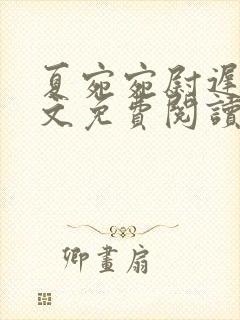 夏宛宛尉遲
文免費閱讀
卿畫扇